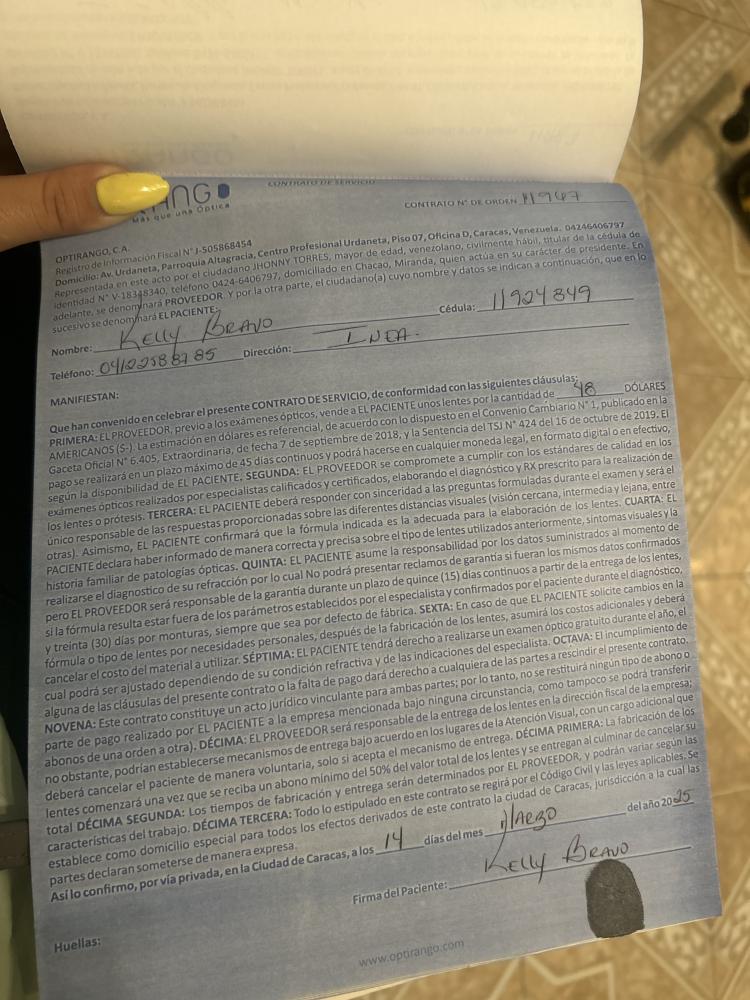 ANGO
Más que una Óptica
CONTRATO DE SERVICIO
CONTRATO N° DE ORDEN 11947
OPTIRANGO, C.A.
Registro de Información Fiscal N° J-505868454
Domicilio: Av. Urdaneta, Parroquia Altagracia, Centro Profesional Urdaneta, Piso 07, Oficina D, Caracas, Venezuela. 04246406797
Representada en este acto por el ciudadano JHONNY TORRES, mayor de edad, venezolano, civilmente hábil, titular de la cédula de
identidad N° V-18348340, teléfono 0424-6406797, domiciliado en Chacao, Miranda, quien actúa en su carácter de presidente. En
adelante, se denominará PROVEEDOR. Y por la otra parte, el ciudadano(a) cuyo nombre y datos se indican a continuación, que en lo
sucesivo se denominará EL PACIENTE:
Nombre: Kelly Bravo Cédula: 11924849
Teléfono: Dirección: INEA.
MANIFIESTAN:
Que han convenido en celebrar el presente CONTRATO DE SERVICIO, de conformidad con las siguientes cláusulas:
PRIMERA: EL PROVEEDOR, previo a los exámenes ópticos, vende a EL PACIENTE unos lentes por la cantidad de 48 DÓLARES
AMERICANOS ($-). La estimación en dólares es referencial, de acuerdo con lo dispuesto en el Convenio Cambiario N° 1, publicado en la
Gaceta Oficial N° 6.405, Extraordinaria, de fecha 7 de septiembre de 2018, y la Sentencia del TSJ N° 424 del 16 de octubre de 2019. El
pago se realizará en un plazo máximo de 45 días continuos y podrá hacerse en cualquier moneda legal, en formato digital o en efectivo,
según la disponibilidad de EL PACIENTE. SEGUNDA: EL PROVEEDOR se compromete a cumplir con los estándares de calidad en los
exámenes ópticos realizados por especialistas calificados y certificados, elaborando el diagnóstico y RX prescrito para la realización de
los lentes o prótesis. TERCERA: EL PACIENTE deberá responder con sinceridad a las preguntas formuladas durante el examen y será el
único responsable de las respuestas proporcionadas sobre las diferentes distancias visuales (visión cercana, intermedia y lejana, entre
otras). Asimismo, EL PACIENTE confirmará que la fórmula indicada es la adecuada para la elaboración de los lentes. CUARTA: EL
PACIENTE declara haber informado de manera correcta y precisa sobre el tipo de lentes utilizados anteriormente, síntomas visuales y la
historia familiar de patologías ópticas. QUINTA: EL PACIENTE asume la responsabilidad por los datos suministrados al momento de
realizarse el diagnostico de su refracción por lo cual No podrá presentar reclamos de garantía si fueran los mismos datos confirmados
pero EL PROVEEDOR será responsable de la garantía durante un plazo de quince (15) días continuos a partir de la entrega de los lentes,
si la fórmula resulta estar fuera de los parámetros establecidos por el especialista y confirmados por el paciente durante el diagnóstico,
y treinta (30) días por monturas, siempre que sea por defecto de fábrica. SEXTA: En caso de que EL PACIENTE solicite cambios en la
fórmula o tipo de lentes por necesidades personales, después de la fabricación de los lentes, asumirá los costos adicionales y deberá
cancelar el costo del material a utilizar. SÉPTIMA: EL PACIENTE tendrá derecho a realizarse un examen óptico gratuito durante el año, el
cual podrá ser ajustado dependiendo de su condición refractiva y de las indicaciones del especialista. OCTAVA: El incumplimiento de
alguna de las cláusulas del presente contrato o la falta de pago dará derecho a cualquiera de las partes a rescindir el presente contrato.
NOVENA: Este contrato constituye un acto jurídico vinculante para ambas partes; por lo tanto, no se restituirá ningún tipo de abono o
parte de pago realizado por EL PACIENTE a la empresa mencionada bajo ninguna circunstancia, como tampoco se podrá transferir
abonos de una orden a otra). DÉCIMA: EL PROVEEDOR será responsable de la entrega de los lentes en la dirección fiscal de la empresa;
no obstante, podrían establecerse mecanismos de entrega bajo acuerdo en los lugares de la Atención Visual, con un cargo adicional que
deberá cancelar el paciente de manera voluntaria, solo si acepta el mecanismo de entrega. DÉCIMA PRIMERA: La fabricación de los
lentes comenzará una vez que se reciba un abono mínimo del 50% del valor total de los lentes y se entregan al culminar de cancelar su
total DÉCIMA SEGUNDA: Los tiempos de fabricación y entrega serán determinados por EL PROVEEDOR, y podrán variar según las
características del trabajo. DÉCIMA TERCERA: Todo lo estipulado en este contrato se regirá por el Código Civil y las leyes aplicables. Se
establece como domicilio especial para todos los efectos derivados de este contrato la ciudad de Caracas, jurisdicción a la cual las
partes declaran someterse de manera expresa.
Así lo confirmo, por vía privada, en la Ciudad de Caracas, a los 14 días del mes Marzo del año 2025
Firma del Paciente: Kelly Bravo
Huellas:
www.optirango.com